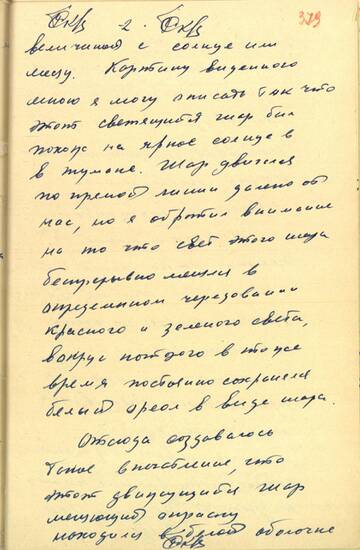 379
2.
величиной с солнце или
месяц. Картину виденного
мною я могу описать так что
этот светящийся шар был
похож на яркое солнце в
в тумане. Шар двигался
по прямой линии далеко от
нас, но я обратил внимание
на то что свет этого шара
беспрерывно менялся в
определенном чередовании
красного и зеленого света,
вокруг которого в то же
время постоянно сохранялся
белый ореол в виде шара.
Отсюда создавалось
такое впечатление, что
этот движущийся шар
меняющий окраску
находился в белой оболочке